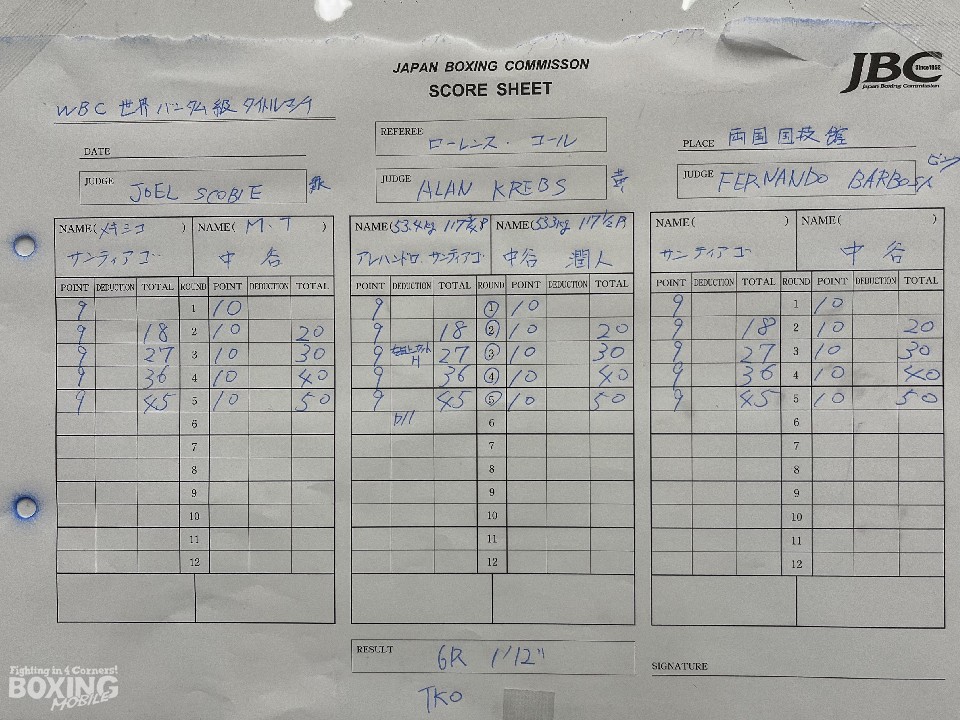 JAPAN BOXING COMMISSON
SCORE SHEET
JBC
Since1952
Japan Boxing Commission
WBC 世界バンタム級タイトルマッチ
DATE
REFEREE ローレンス・コール
PLACE 両国国技館
JUDGE JOEL SCOBIE
JUDGE ALAN KREBS
JUDGE FERNANDO BARBOSA
NAME(メキシコ) NAME(M.T)
サンティアゴ 中谷
POINT DEDUCTION TOTAL ROUND POINT DEDUCTION TOTAL
9 1 10
9 18 2 10 20
9 27 3 10 30
9 36 4 10 40
9 45 5 10 50
6
7
8
9
10
11
12
NAME(53.4kg 117 3/4 P NAME(53.3kg 117 1/2 P
アレハンドロ・サンティアゴ 中谷 潤人
POINT DEDUCTION TOTAL ROUND POINT DEDUCTION TOTAL
9 ① 10
9 18 ② 10 20
9 27 ③ 10 30
9 36 ④ 10 40
9 45 ⑤ 10 50
6
7
8
9
10
11
12
NAME( ) NAME( )
サンティアゴ 中谷
POINT DEDUCTION TOTAL ROUND POINT DEDUCTION TOTAL
9 1 10
9 18 2 10 20
9 27 3 10 30
9 36 4 10 40
9 45 5 10 50
6
7
8
9
10
11
12
RESULT 6R 1'12"
TKO
SIGNATURE
Fighting in 4 Corners!
BOXING
MOBILE